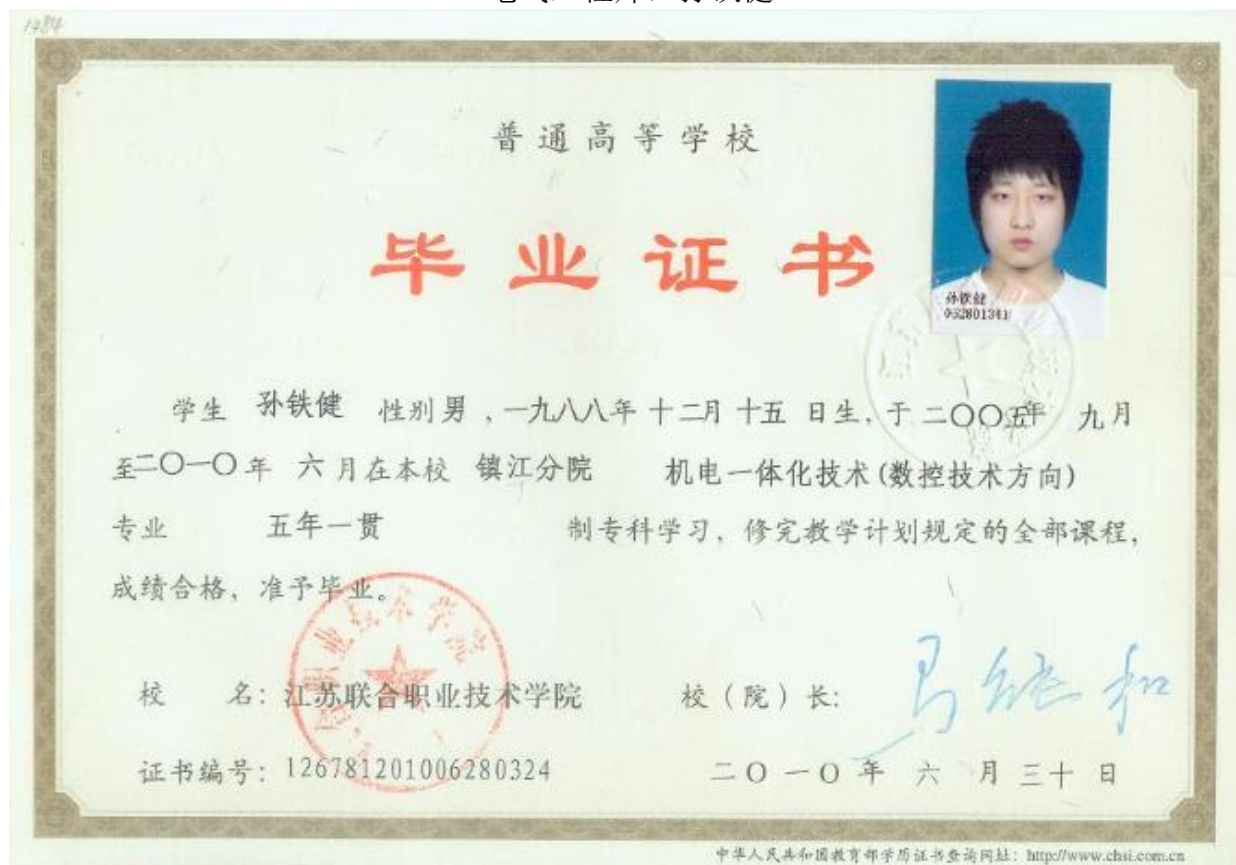 1484
普通高等学校
毕业证书
孙铁健
0532801341
学生 孙铁健 性别 男 ,一九八八年 十二月 十五 日生, 于 二〇〇五年 九月
至二〇一〇年 六 月在本校 镇江分院 机电一体化技术(数控技术方向)
专业 五年一贯 制专科学习, 修完教学计划规定的全部课程,
成绩合格, 准予毕业。
校 名: 江苏联合职业技术学院 校(院)长: 马继和
证书编号: 126781201006280324 二〇一〇年 六 月 三十 日
中华人民共和国教育部学历证书查询网址: http://www.chsi.com.cn